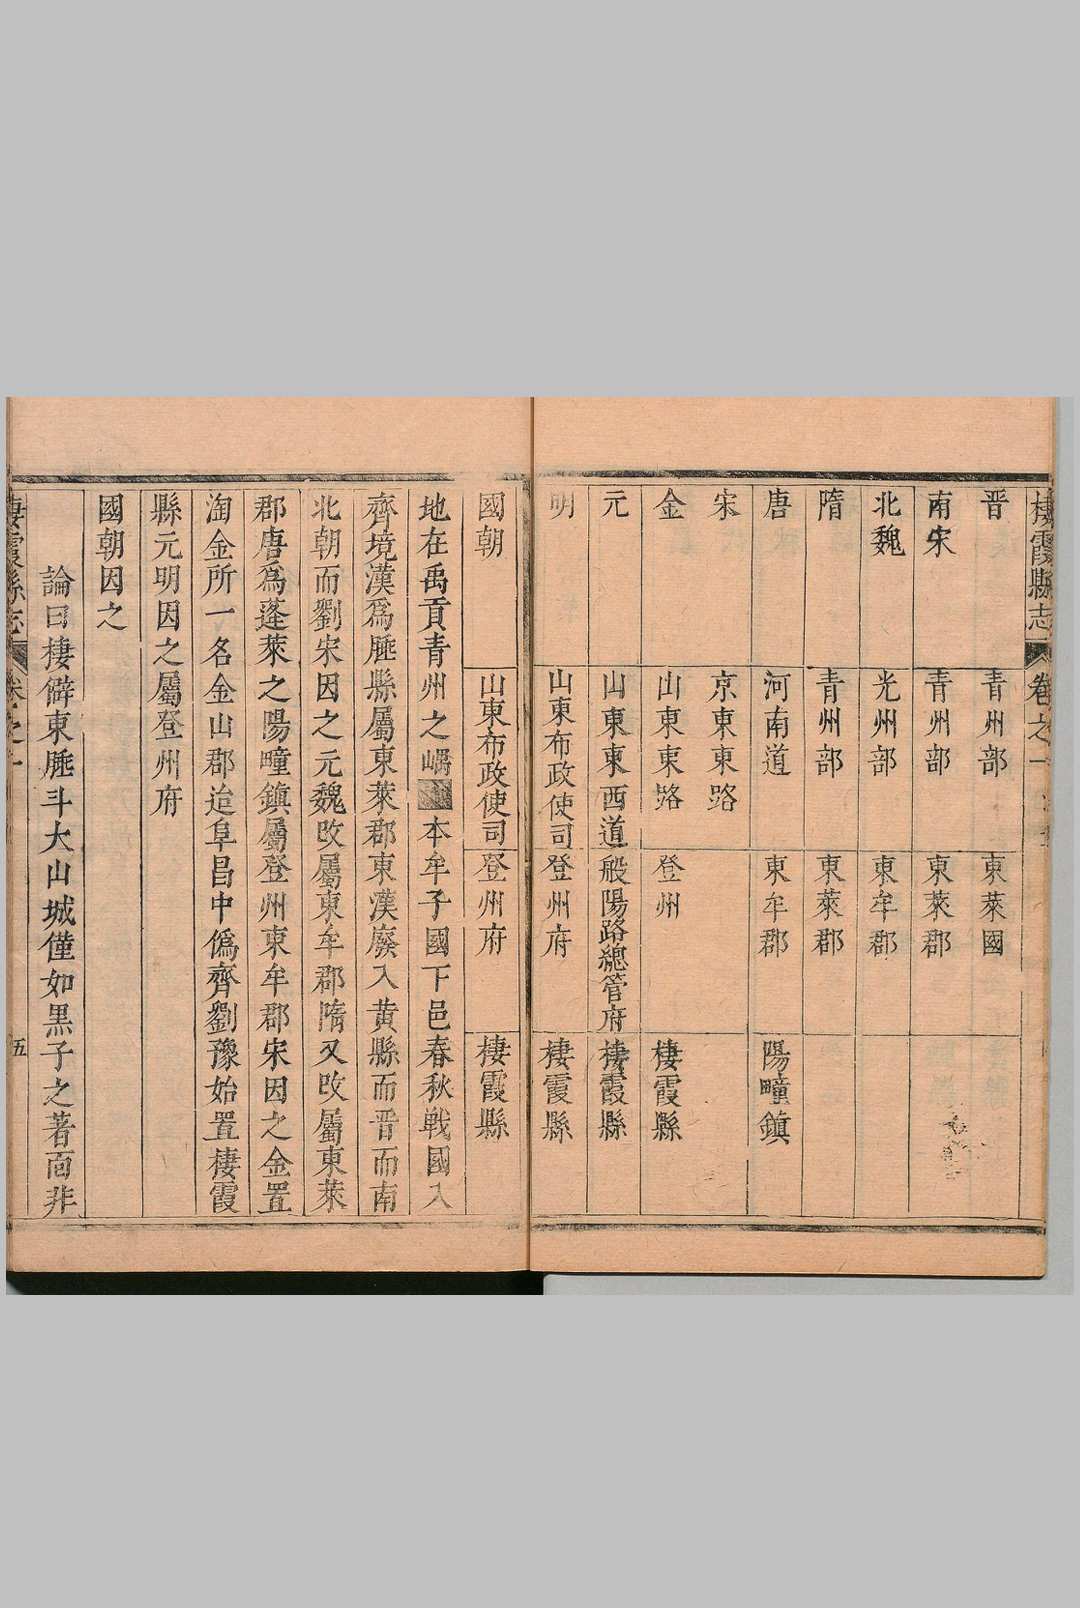 棲霞縣志 卷之一
晋 青州部 東萊國
南宋 青州部 東萊郡
北魏 光州部 東牟郡
隋 青州部 東萊郡
唐 河南道 東牟郡 陽疃鎮
宋 京東東路
金 山東東路 登州 棲霞縣
元 山東東西道 般陽路總管府 棲霞縣
明 山東布政使司 登州府 棲霞縣
國朝 山東布政使司 登州府 棲霞縣
地在禹貢青州之嵎 本牟子國下邑春秋戰國入
齊境漢爲腄縣屬東萊郡東漢廢入黃縣而晋而南
北朝而劉宋因之元魏改屬東牟郡隋又改屬東萊
郡唐爲蓬萊之陽疃鎮屬登州東牟郡宋因之金置
淘金所一名金山郡迨阜昌中僞齊劉豫始置棲霞
縣元明因之屬登州府
國朝因之
論曰棲僻東腄斗大山城僅如黑子之著面非
棲霞縣志 卷之一 五